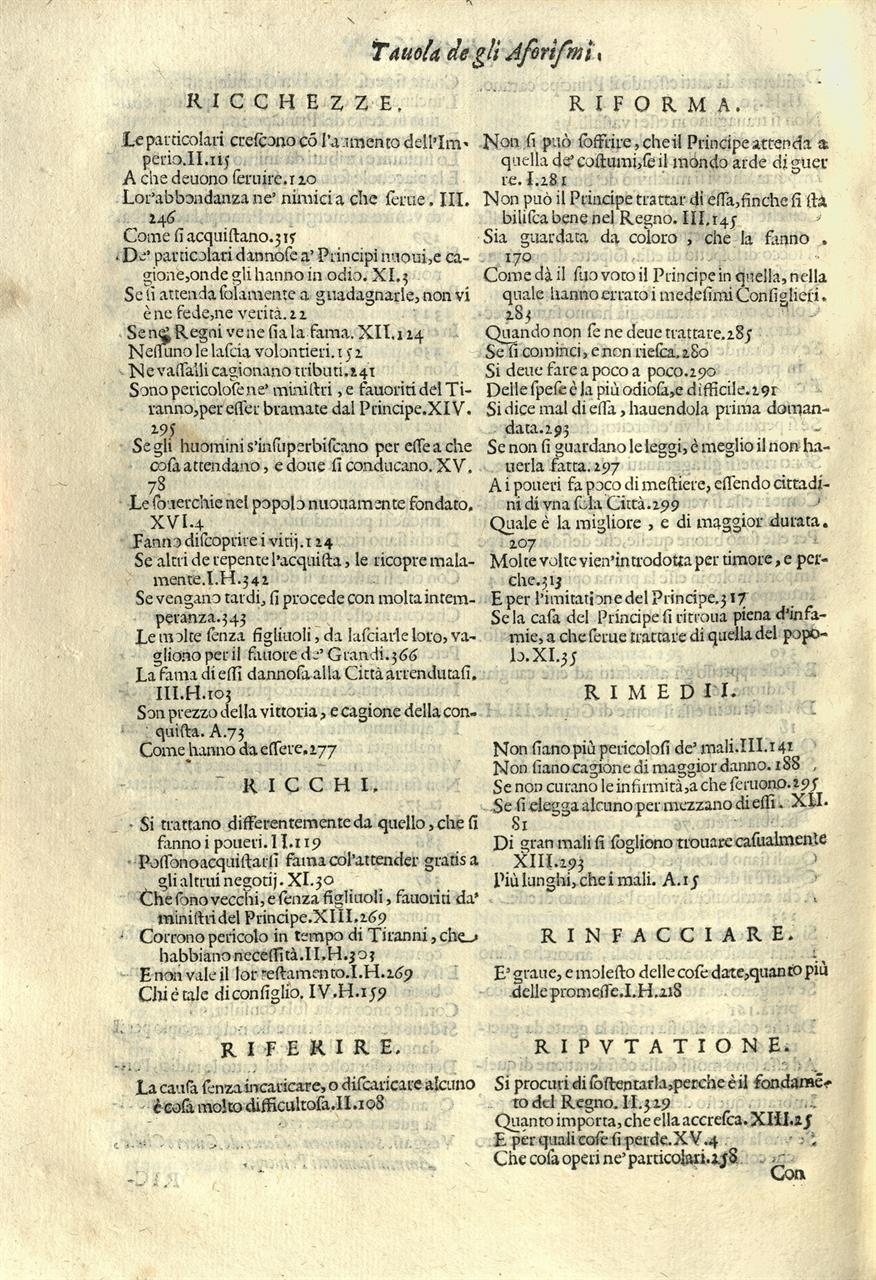 Tauola de gli Aforiſmi.
RICCHEZZE.
Le particolari creſcono cõ l'aumento dell'Im-
perio.II.115
A che deuono ſeruire.120
Lor'abbondanza ne' nimici a che ſerue. III.
246
Come ſi acquiſtano.315
De' particolari dannoſe a' Principi nuoui,e ca-
gione,onde gli hanno in odio. XI.3
Se ſi attenda ſolamente a guadagnarle, non vi
è ne fede,ne verità.22
Se ne Regni ve ne ſia la fama. XII.124
Neſſuno le laſcia volontieri.152
Ne vaſſalli cagionano tributi.241
Sono pericoloſe ne' miniſtri, e fauoriti del Ti-
ranno,per eſſer bramate dal Principe.XIV.
295
Se gli huomini s'inſuperbiſcano per eſſe a che
coſa attendano, e doue ſi conducano. XV.
78
Le ſouerchie nel popolo nuouamente fondato.
XVI.4
Fanno diſcoprire i vitij.124
Se altri de repente l'acquiſta, le ricopre mala-
mente.I.H.342
Se vengano tardi, ſi procede con molta intem-
peranza.343
Le molte ſenza figliuoli, da laſciarle loro, va-
gliono per il fauore de' Grandi.366
La fama di eſſi dannoſa alla Città arrendutaſi.
III.H.103
Son prezzo della vittoria, e cagione della con-
quiſta. A.73
Come hanno da eſſere.277
RICCHI.
Si trattano differentemente da quello, che ſi
fanno i poueri. II.119
Poſſono acquiſtarſi fama col'attender gratis a
gli altrui negotij. XI.30
Che ſono vecchi, e ſenza figliuoli, fauoriti da'
miniſtri del Principe.XIII.269
Corrono pericolo in tempo di Tiranni, che
habbiano neceſſità.II.H.303
E non vale il lor teſtamento.I.H.269
Chi è tale di conſiglio. IV.H.159
RIFERIRE.
La cauſa ſenza incaricare, o diſcaricare alcuno
è coſa molto difficultoſa.II.108
RIFORMA.
Non ſi può ſoffrire, che il Principe attenda a
quella de' coſtumi,ſe il mondo arde di guer
re. I.281
Non può il Principe trattar di eſſa,finche ſi ſta
biliſca bene nel Regno. III.145
Sia guardata da coloro , che la fanno .
170
Come dà il ſuo voto il Principe in quella, nella
quale hanno errato i medeſimi Conſiglieri.
283
Quando non ſe ne deue trattare.285
Se ſi cominci, e non rieſca.280
Si deue fare a poco a poco.290
Delle ſpeſe è la più odioſa,e difficile.291
Si dice mal di eſſa, hauendola prima doman-
data.293
Se non ſi guardano le leggi, è meglio il non ha-
uerla fatta.297
A i poueri fa poco di meſtiere, eſſendo cittadi-
ni di vna ſola Città.299
Quale è la migliore , e di maggior durata.
207
Molte volte vien'introdotta per timore, e per-
che.313
E per l'imitatione del Principe.317
Se la caſa del Principe ſi ritroua piena d'infa-
mie, a che ſerue trattare di quella del popo-
lo.XI.35
RIMEDII.
Non ſiano più pericoloſi de' mali.III.141
Non ſiano cagione di maggior danno. 188
Se non curano le infirmità,a che ſeruono.295
Se ſi elegga alcuno per mezzano di eſſi. XII.
81
Di gran mali ſi ſogliono trouare caſualmente
XIII.293
Più lunghi, che i mali. A.15
RINFACCIARE.
E' graue, e moleſto delle coſe date,quanto più
delle promeſſe.I.H.218
RIPVTATIONE.
Si procuri di ſoſtentarla,perche è il fondamẽ-
to del Regno. II.329
Quanto importa, che ella accreſca. XIII.25
E per quali coſe ſi perde.XV.4
Che coſa operi ne' particolari.258
Con